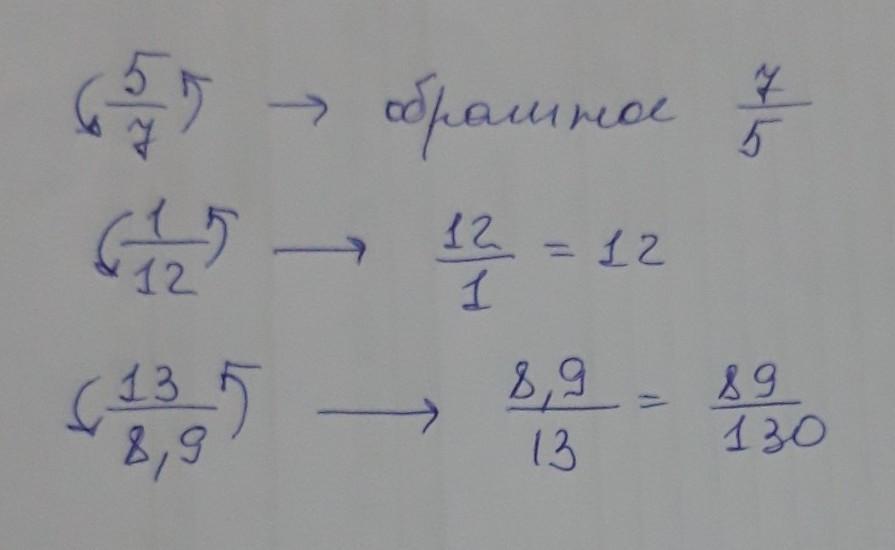 5/7 → обратное 7/5
1/12 → 12/1 = 12
13/8,9 → 8,9/13 = 89/130